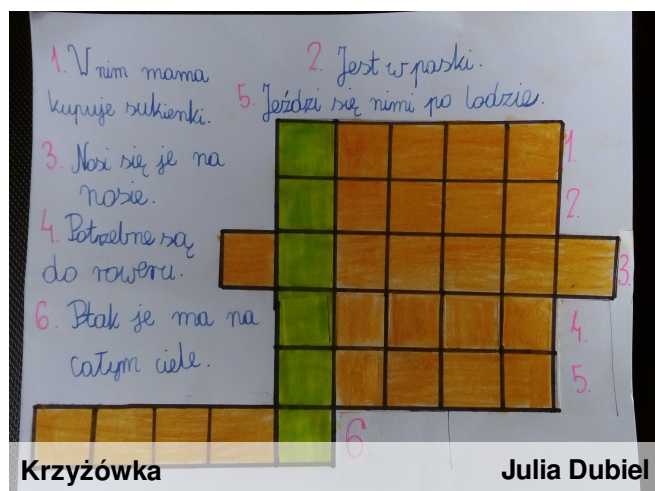 1. W nim mama
kupuje sukienki.
2. Jest w paski.
5. Jeździ się nimi po lodzie.
3. Nosi się je na
nosie.
4. Potrzebne są
do roweru.
6. Ptak je ma na
całym ciele.
1.
2.
3.
4.
5.
6
Krzyżówka
Julia Dubiel